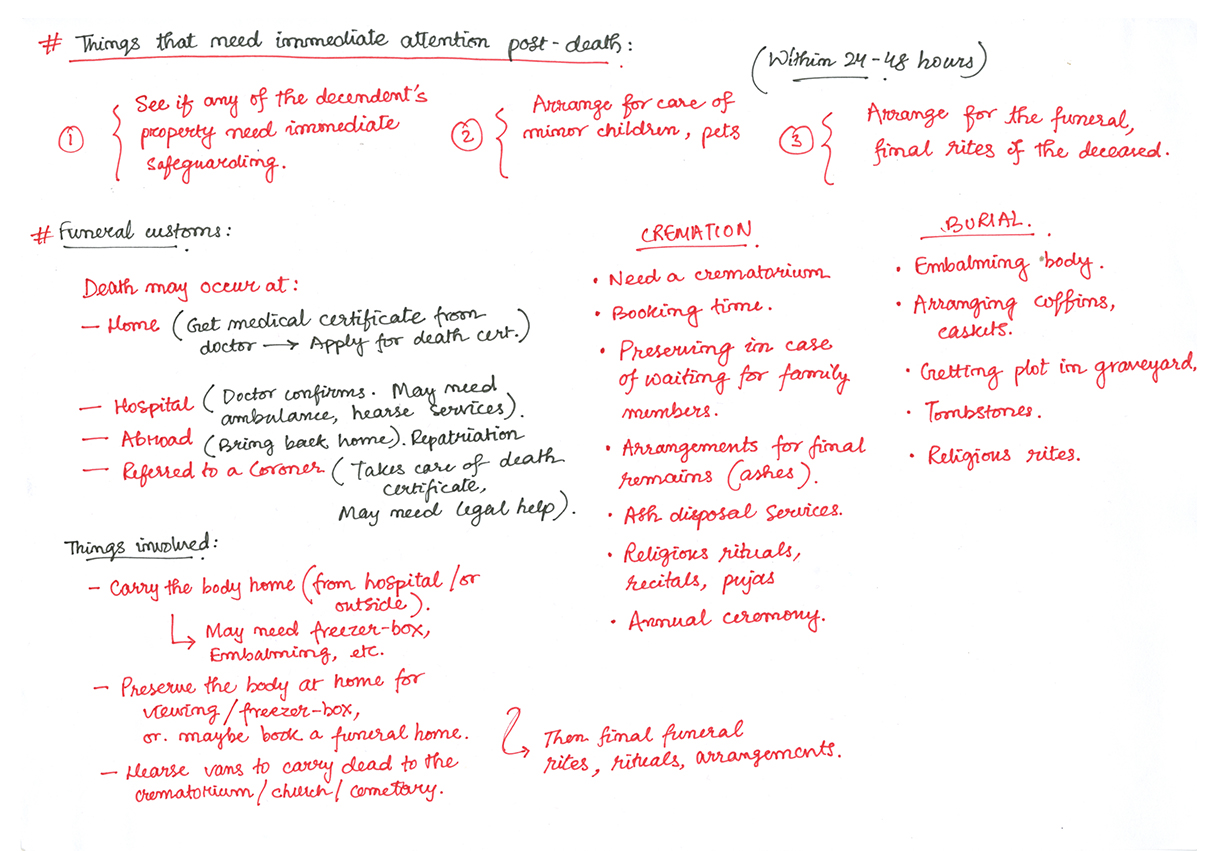 # Things that need immediate attention post-death:
(Within 24-48 hours)
① See if any of the decendent's
property need immediate
safeguarding.
② Arrange for care of
minor children, pets
③ Arrange for the funeral,
final rites of the deceased.
# Funeral customs:
Death may occur at:
— Home (Get medical certificate from
doctor → Apply for death cert.)
— Hospital (Doctor confirms. May need
ambulance, hearse services).
— Abroad (Bring back home). Repatriation
— Referred to a Coroner (Takes care of death
certificate,
May need legal help).
Things involved:
— Carry the body home (from hospital/or
outside).
↳ May need freezer-box,
Embalming, etc.
— Preserve the body at home for
viewing/freezer-box,
or. maybe book a funeral home.
— Hearse vans to carry dead to the
crematorium/church/cemetary.
↳ Then final funeral
rites, rituals, arrangements.
CREMATION.
• Need a crematorium
• Booking time.
• Preserving in case
of waiting for family
members.
• Arrangements for final
remains (ashes).
• Ash disposal services.
• Religious rituals,
recitals, pujas
• Annual ceremony.
BURIAL.
• Embalming body.
• Arranging coffins,
caskets.
• Getting plot in graveyard,
• Tombstones.
• Religious rites.